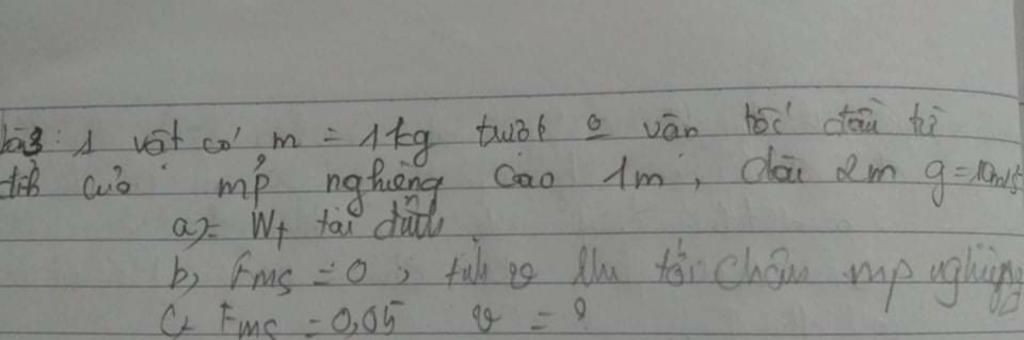 bài3: 1 vật có m = 1kg trượt o vận tốc đầu từ
đỉnh của mp nghiêng cao 1m, dài 2m g=10m/s²
a) Wt tại đỉnh
b, Fms = 0, tính v khi tới chân mp nghiêng
c, Fms = 0,05 v = ?